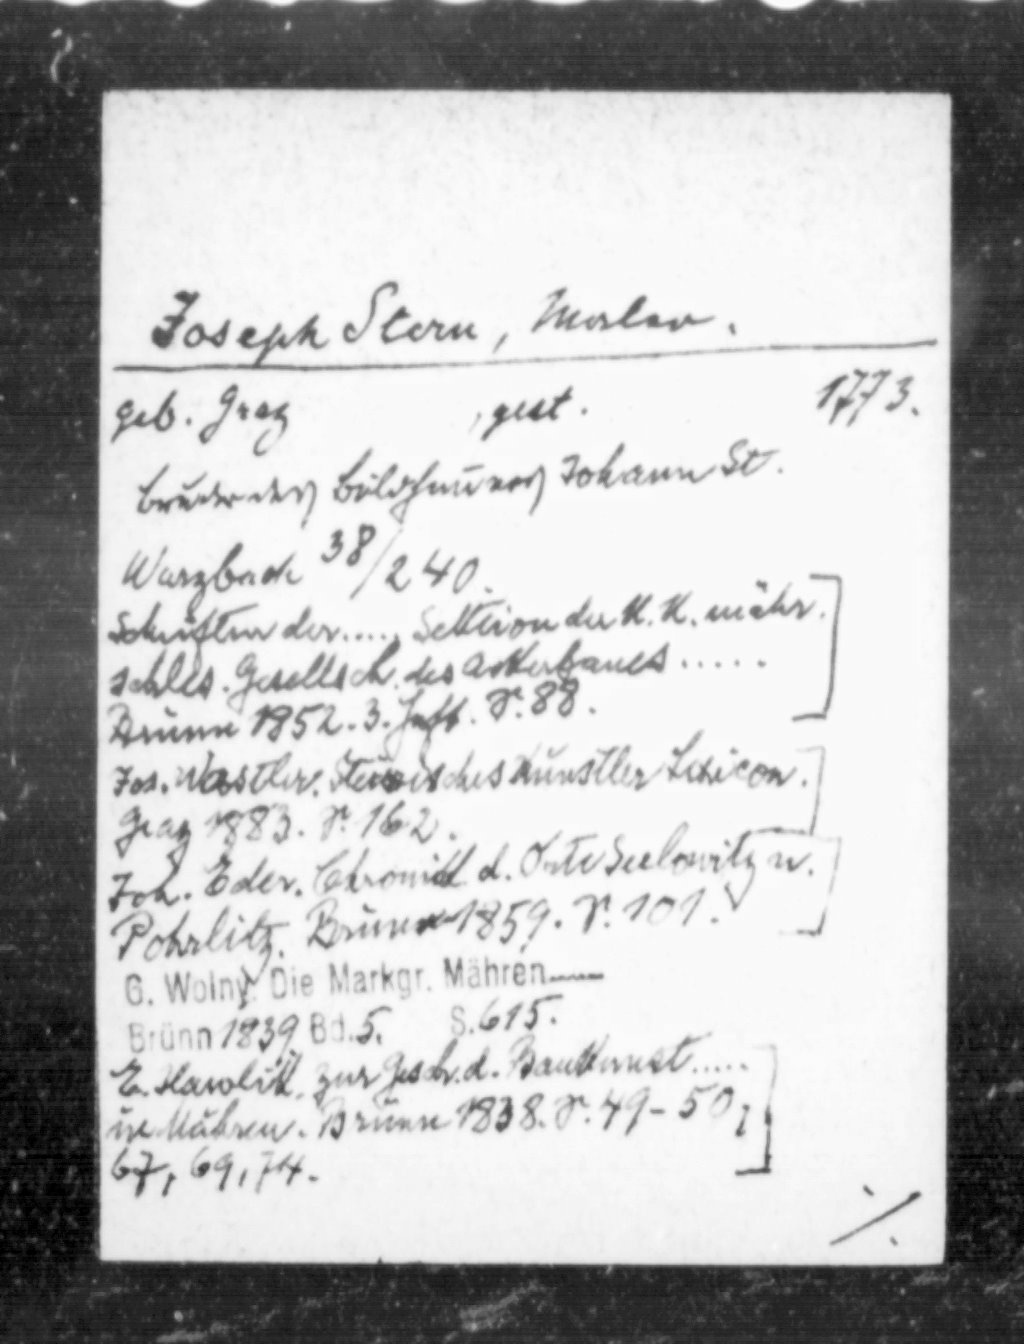 Joseph Stern, Maler.
geb. Graz , gest. 1773.
Bruder des Bildhauers Johann St.
Wurzbach 38/240.
Schriften der..... Sektion der K. K. mähr.
schles. Gesellsch. des Ackerbaues .....
Brünn 1852. 3. Heft. S. 88.
Jos. Wastler. Steirisches Künstler Lexicon.
Graz 1883. S. 162.
Joh. Eder. Chronik d. Orte Seelowitz u.
Pohrlitz. Brünn 1859. S. 101.
G. Wolny. Die Markgr. Mähren
Brünn 1839 Bd. 5. S. 615.
E. Hawlik, zur Gesch. d. Baukunst.....
in Mähren. Brünn 1838. S. 49-50,
67, 69, 74.
./.